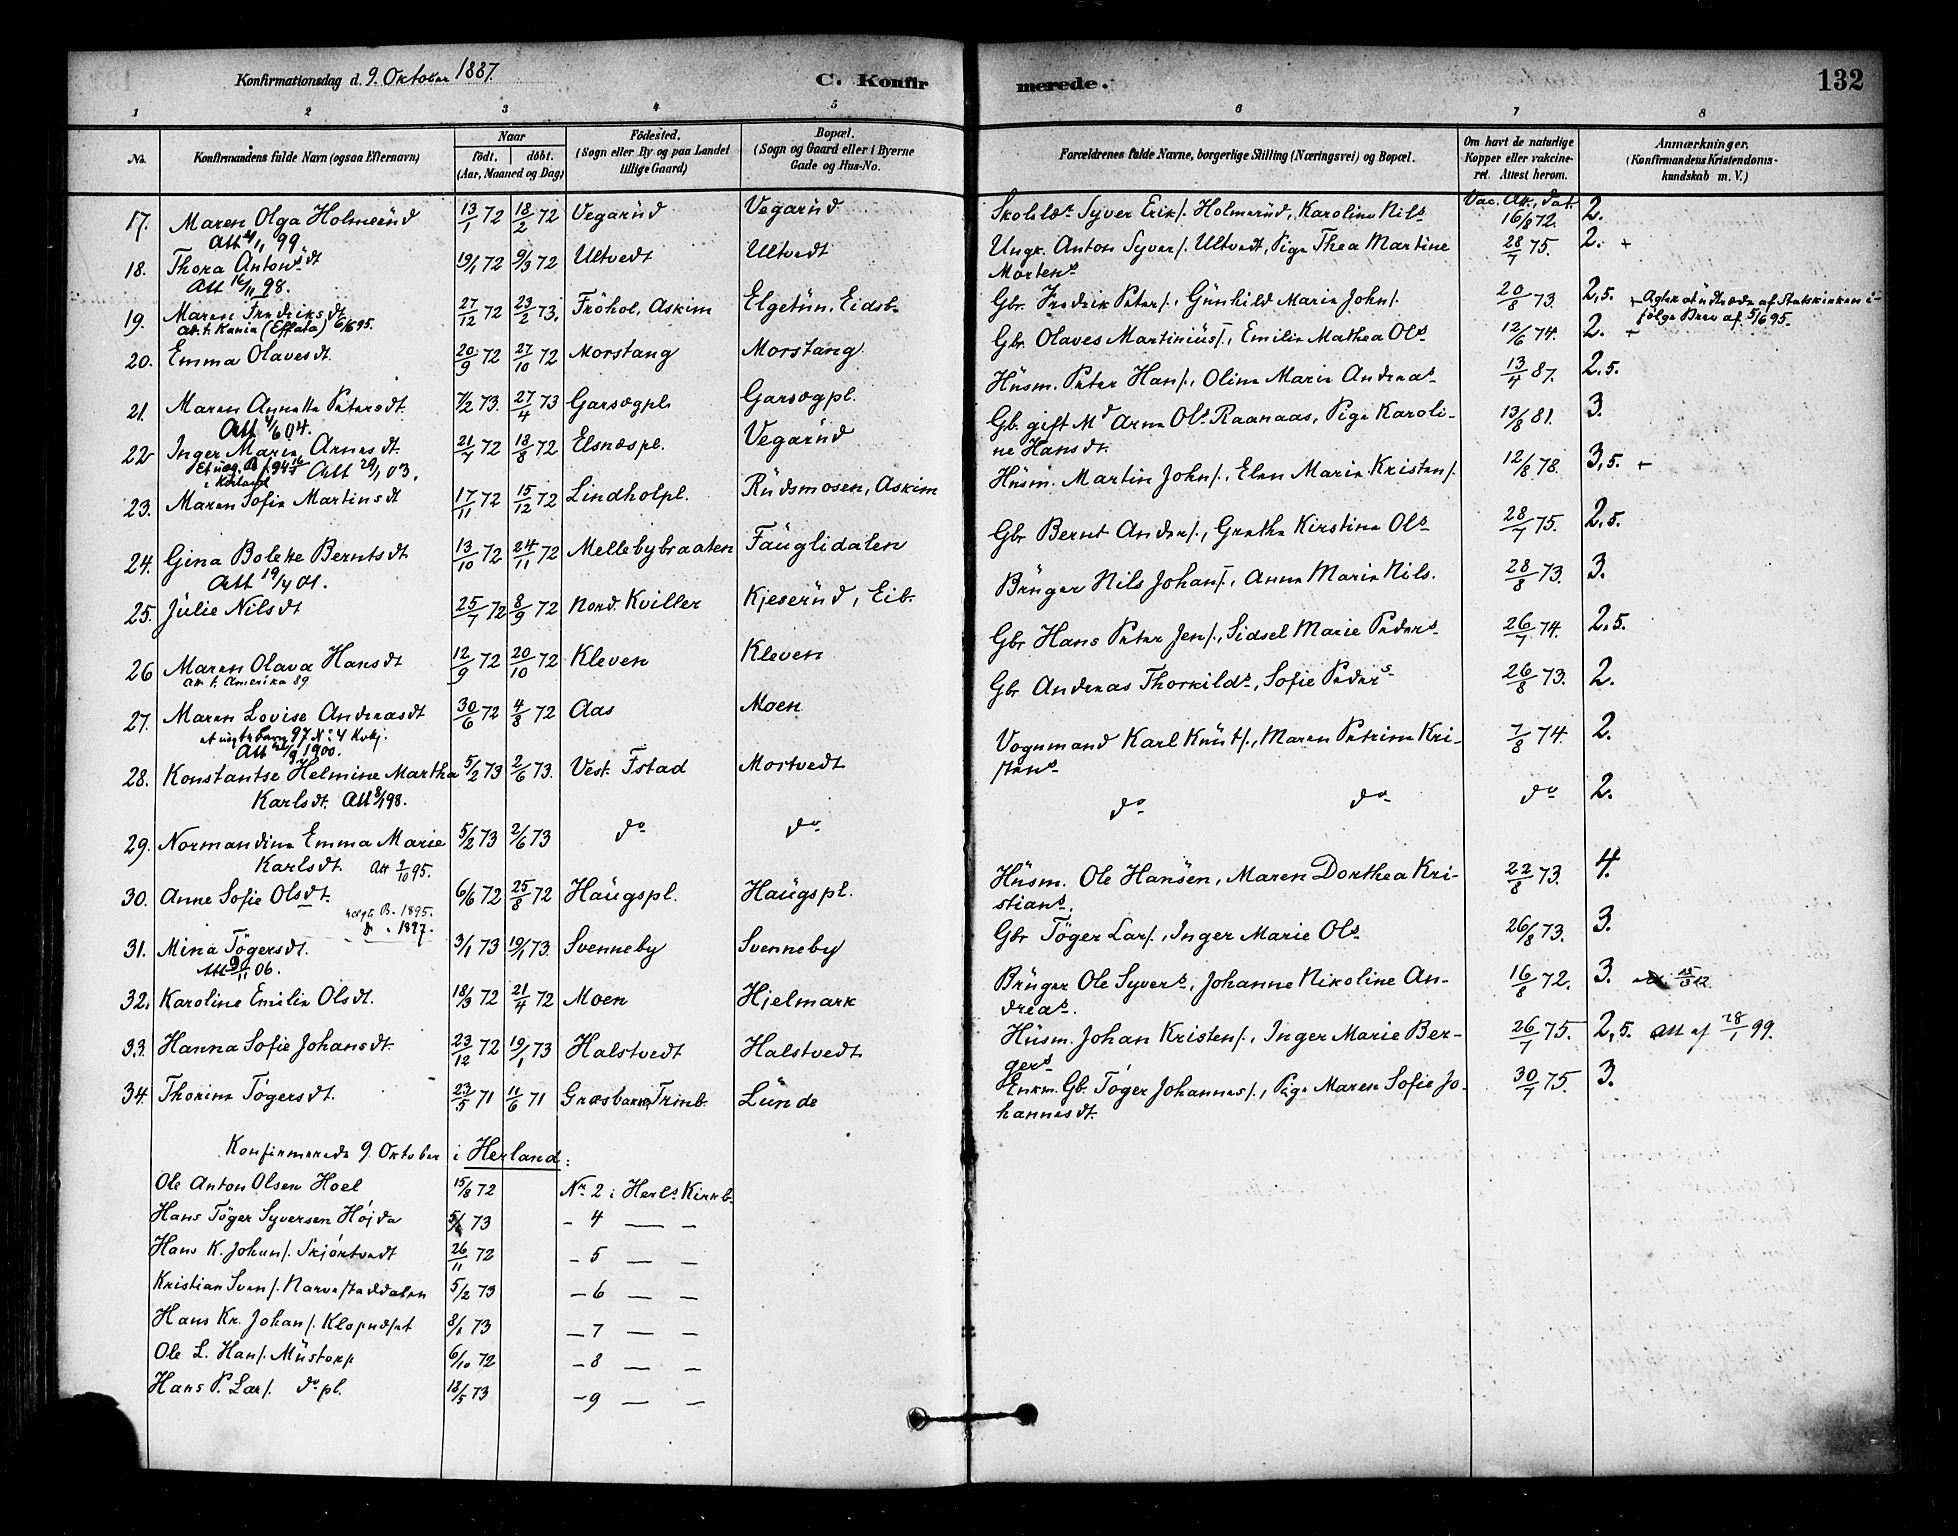 Konfirmationsdag d. 9. Oktober 1887.
C. Konfir
merede.
132
1 2 3 4 5 6 7 8
No.
Konfirmandens fulde Navn (ogsaa Efternavn)
Naar
födt. döbt.
(Aar, Maaned og Dag)
Födested.
(Sogn eller By og paa Landet
tillige Gaard)
Bopæl.
(Sogn og Gaard eller i Byerne
Gade og Hus-No.
Forældrenes fulde Navne, borgerlige Stilling (Næringsvei) og Bopæl.
Om havt de naturlige
Kopper eller vakcine-
ret. Attest herom.
Anmærkninger,
(Konfirmandens Kristendoms-
kundskab m. V.)
Vac. Att., dat.
17. Maren Olga Holmerüd 13/1 72 18/2 72 Vegarüd Vegarüd Skoleld. Syver Erik/. Holmerüd, Karoline Nils 16/8 72. 2.
Att 4/11 99
18. Thora Antonsdt 19/1 72 9/3 72 Ultvedt Ultvedt Ungk. Anton Syver/. Ultvedt, Pige Thea Martine 28/7 75. 2. +
Mortens
Att 16/11 98.
19. Maren Fredriksdt 27/12 72 23/2 73. Fröhol, Askim Elgetün, Eidsb. Gbr. Fredrik Peter/., Günhild Marie John/. 20/8 73. 2,5. + Agter at udtræde af Statskirken i-
følge Brev af 5/6 95.
att. t. Kania (Effata) 6/6 95.
20. Emma Olavesdt. 20/9 72 27/10 72 Morstang Morstang Gbr. Olaves Martiniüs/., Emilie Mathea Ols 12/6 74. 2. +
21. Maren Annette Petersdt. 7/2 73. 27/4 73 Garsegpl. Garsegpl. Hüsm. Peter Han/., Oline Marie Andreas 13/4 87. 2,5.
Att 4/6 04.
22 Inger Marie Arnesdt 21/7 72 18/8 72 Elsnæspl. Vegarüd Gb. gift Md Arne Ols. Raanaas, Pige Karoli- 13/8 81. 3.
ne Hansdt.
Att 29/1 03.
23. Maren Sofie Martinsdt 17/11 72 15/12 72 Lindholpl. Rüdsmosen, Askim Hüsm. Martin John/., Elen Marie Kristen/. 12/8 78. 3,5. +
24. Gina Bolette Berntsdt 13/10 72 24/11 72 Mellebybraaten Faüglidalen Gbr Bernt Anders/., Grethe Kirstine Ols 28/7 75. 2,5.
Att 19/4 01.
25. Jülie Nilsdt 25/7 72 8/9 72 Nord. Kviller Kjeserüd, Eib. Brüger Nils Johan/., Anne Marie Nils. 28/8 73. 3.
26 Maren Olava Hansdt 12/9 72 20/10 72 Kleven Kleven Gbr Hans Peter Jen/., Sidsel Marie Peders 26/7 74. 2,5.
att. t. Amerika 89
27. Maren Lovise Andreasdt 30/6 72 4/8 72 Aas Moen Gbr. Andreas Thorkilds, Sofie Peders 26/8 73. 2.
Att 1900.
28. Konstantse Helmine Martha 5/2 73 2/6 73. Vest. Fstad Mortvedt Vognmand Karl Knüt/., Maren Petrine Kri- 7/8 74. 2.
stens
Karlsdt. Att 8/1 98.
29. Normandine Emma Marie 5/2 73 2/6 73 do do do do do 2.
Karlsdt. Att 2/10 95.
30. Anne Sofie Olsdt. 6/6 72 25/8 72 Haügspl. Haügspl. Hüsm. Ole Hansen, Maren Dorthea Kri- 22/8 73. 4.
stians.
uægt. B. 1895.
do 1897.
31. Mina Tögersdt. 3/1 73 19/1 73. Svenneby Svenneby Gbr Töger Lar/., Inger Marie Ols 26/8 73. 3.
Att 9/11 06.
32. Karoline Emilie Olsdt. 18/3 72 21/4 72 Moen Hjelmark Brüger Ole Syvers, Johanne Nikoline An- 16/8 72. 3.
dreas.
33. Hanna Sofie Johansdt. 23/12 72 19/1 73 Halstvedt Halstvedt Hüsm. Johan Kristen/., Inger Marie Ber- 26/7 75. 2,5. Att af 28/1 99.
gers
34. Thorine Tögersdt. 23/5 71 11/6 71 Græsbakke, Trøgb. Lünde Enkm. Gb. Töger Johannes/., Pige Maren Sofie Jo- 30/7 75. 3.
hannesdt.
Konfirmerede 9. Oktober i Herland:
Ole Anton Olsen Hoel 15/8 72 Nr. 2 i Herls Kirkeb.
Hans Töger Syversen Højda 73 - 4 — -
Hans K. Johan/. Skjörtvedt 26/11 72 - 5 — -
Kristian Sven/. Narve/taddalen 5/2 73 - 6 — -
Hans Kr. Johan/. Klopnæ/et 73 - 7 — -
Ole L. Han/. Müstorp 6/10 72 - 8 — -
Hans P. Lar/. do pl. 18/5 73 - 9 — -